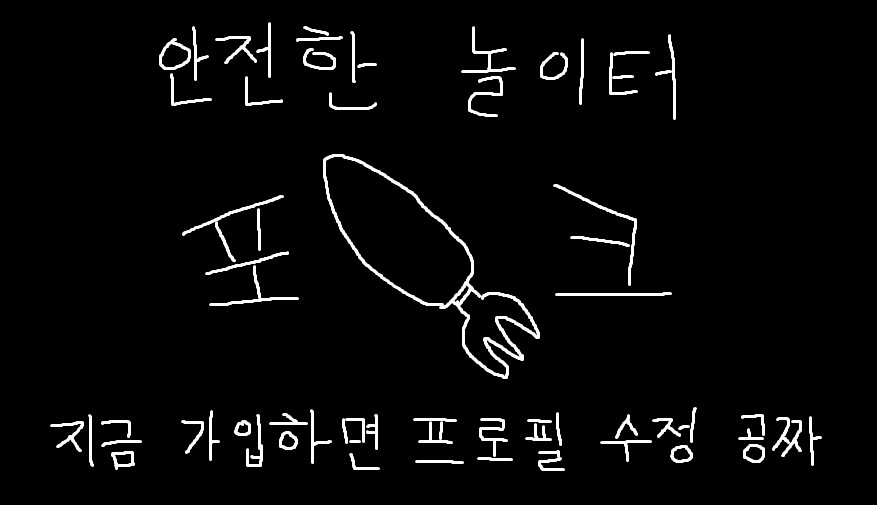 안전한 놀이터
포크
지금 가입하면 프로필 수정 공짜